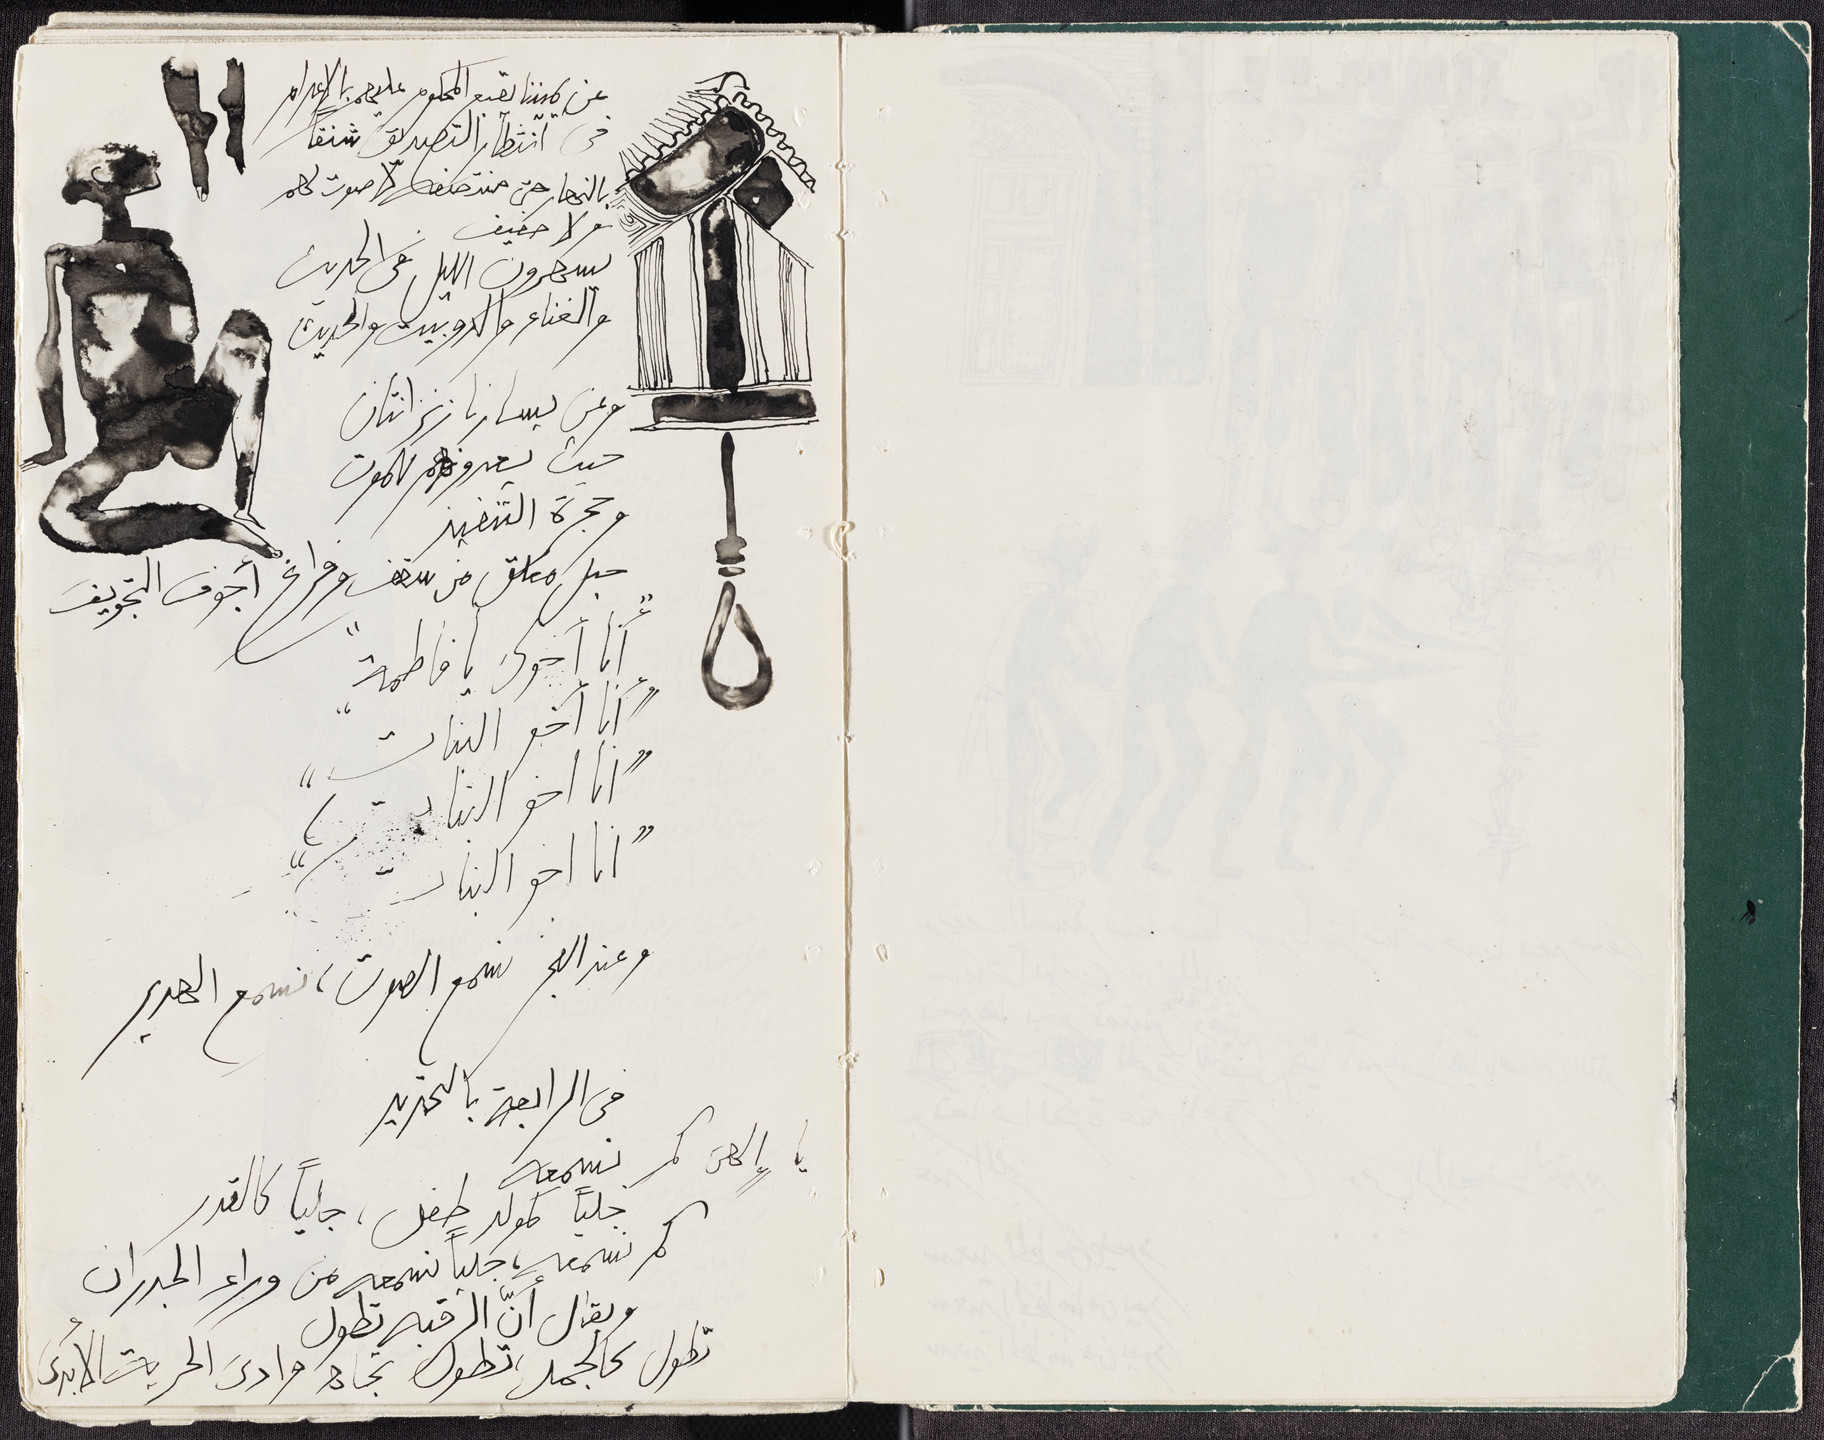 عن يميننا يقبع المحكوم عليهم بالإعدام
في انتظار التصديق شنقاً
بالنهار حتى منتصفه لا صوت لهم
ولا حفيف
يسهرون الليل في الحديث
والغناء والدوبيت والحديث
وعن يسارنا زنزانتان
حيث يعدونهم للموت
وحجرة التنفيذ
حبل معلق من سقف وفراغ أجوف التجويف
"أنا أخوك يا فاطمة"
"أنا أخو البنات"
"انا اخو البنات"
"انا اخو البنات"
وعند الفجر نسمع الصوت، نسمع الهدير
في الرابعة بالتحديد
يا إلهى كم نسمعه
جلياً كمولد طفل، جلياً كالقدر
كم نسمعه، جلياً نسمعه من وراء الجدران
ويقال أنّ الرقبه تطول
تطول كالجمل، تطول تجاه وادى الحريات الأبدىّ